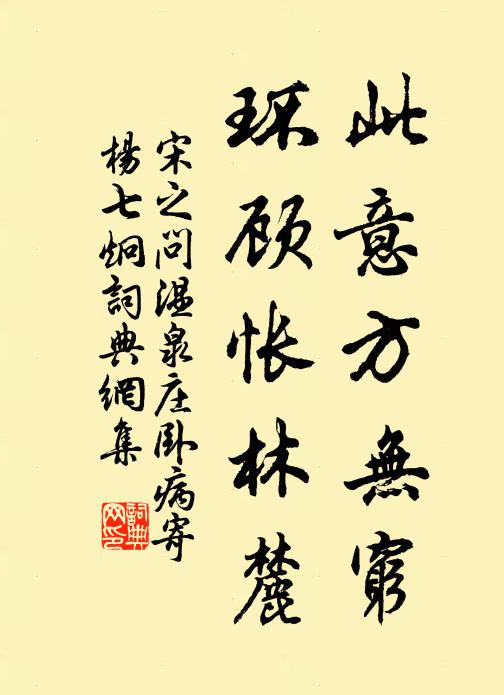 此意方無窮
环顾怅林麓
宋之問温泉庄卧病寄
楊七炯詞典網集
詞典
网印